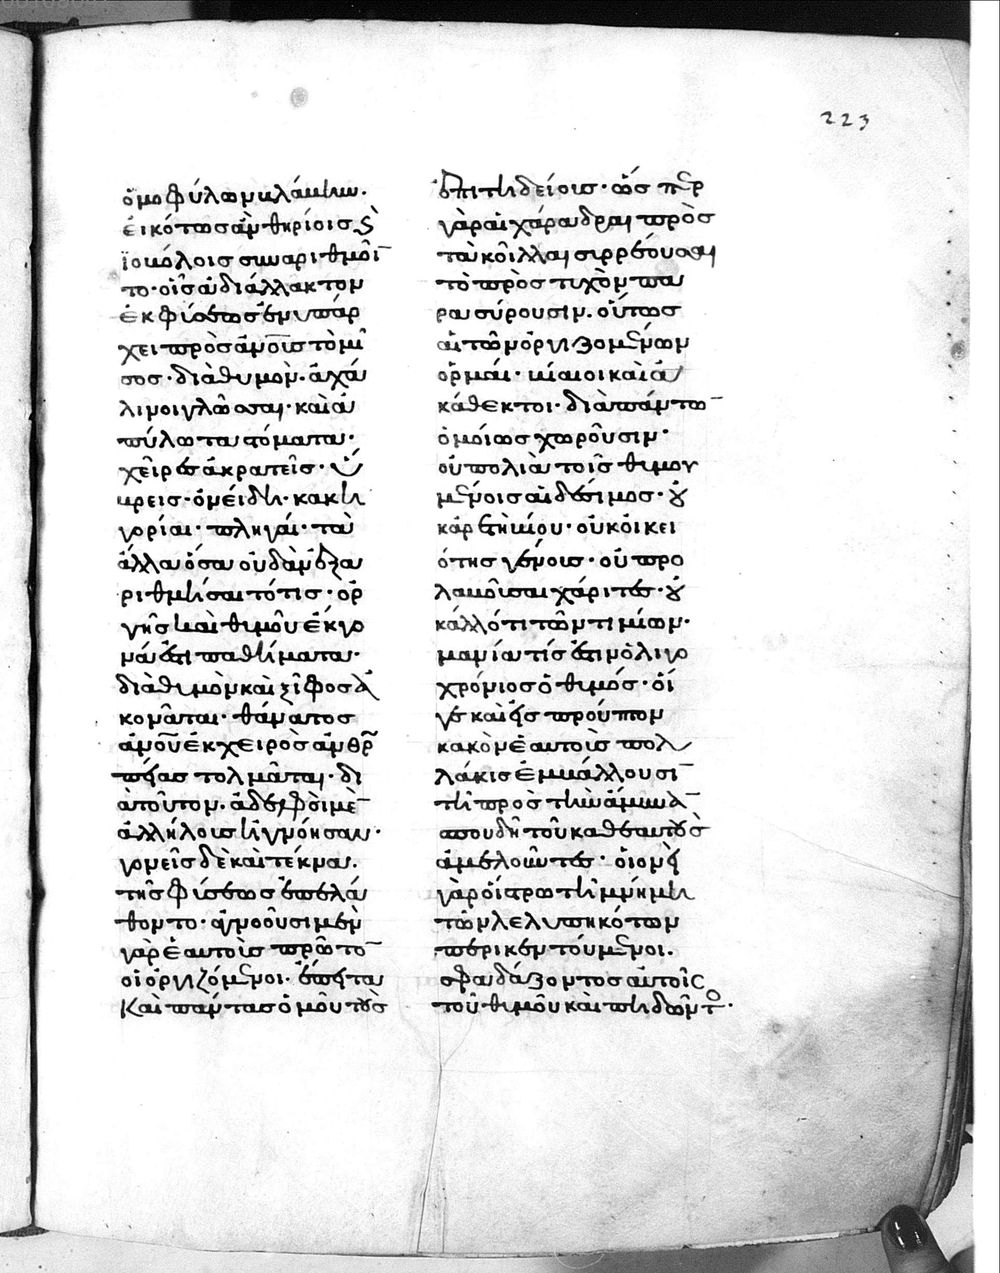 ὁμοφύλων βλάβην·
εἰκότως ἂν θηρίοις κ(αὶ)
ἰοβόλοις συναριθμοῖ
το· οἷς ἀδιάλλακτον
ἐκ φύσεως ἐνυπάρ
χει πρὸς ἀν̅ο̅υ̅ς̅ τὸ μῖ
σος· διὰ θυμὸν· ἀχα
λίνοι γλῶσσαι· καὶ ἀ
πύλωτα στόματα·
χεῖρες ἀκρατεῖς· ὕ
βρεις· ὀνείδη· κακη
γορίαι· πληγαί· τὰ
ἄλλα ὅσα οὐδ' ἂν ἐξα
ριθμήσαιτό τις· ὀρ
γῆς καὶ θυμοῦ ἔκγο
νά ἐστι παθήματα·
διὰ θυμὸν καὶ ξίφος ἀ
κονᾶται· θάνατος
ἀν̅ο̅υ̅ ἐκ χειρὸς ἀνθρω
πείας τολμᾶται· δι
ὰ τοῦτον· ἀδελφοὶ μὲν
ἀλλήλους ἠγνόησαν·
γονεῖς δὲ καὶ τέκνα·
τῆς φύσεως ἐπελά
θοντο· ἀγνοοῦσι μὲν
γὰρ ἑαυτοὺς πρῶτον
οἱ ὀργιζόμενοι· ἔπειτα
καὶ πάντας ὁμοῦ τοὺς
ἐπιτηδείους· ὥσπερ
γὰρ αἱ χαράδραι πρὸς
τὰ κοῖλα συρρέουσαι
τὸ προστυχὸν πα
ρασύρουσιν· οὕτως
αἱ τῶν ὀργιζομένων
ὁρμαί· βίαιοι καὶ ἀ
κάθεκτοι· διὰ πάντων
ὁμοίως χωροῦσιν·
οὐ πολιὰ τοῖς θυμου
μένοις αἰδέσιμος· οὐ
κ ἀρετὴ βίου· οὐκ οἰκει
ότης γένους· οὐ προ
λαβοῦσαι χάριτες· οὐ
κ ἄλλό τι τῶν τιμίων·
μανία τίς ἐστιν ὀλιγο
χρόνιος ὁ θυμός· οἵ
γε καὶ εἰς προῦπτον
κακὸν ἑαυτοὺς πολ
λάκις ἐμβάλλουσιν
τῇ πρὸς τὴν ἄμυναν
σπουδῇ τοῦ καθ' ἑαυτοὺς
ἀμελοῦντες· οἱονεὶ
γὰρ οἴστρω τῇ μνήμῃ
τῶν λελυπηκότων
περικεντούμενοι·
σφαδάζοντος αὐτοῖς
τοῦ θυμοῦ καὶ πηδῶντο(ς)·
223